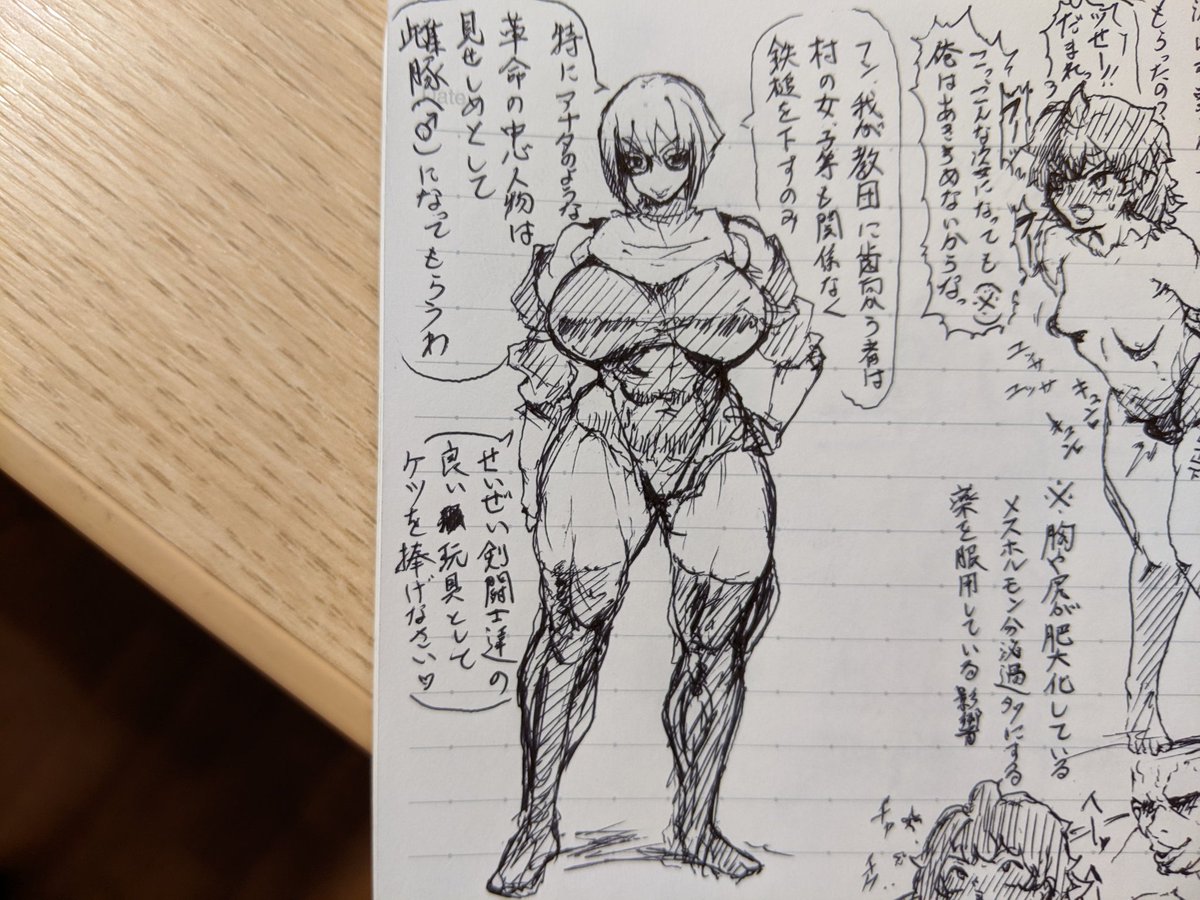 もらったの?
だまれっ
こっこんな姿になっても(※)
俺はあきらめないからなっ
フン、我が教団に歯向かう者は
村の女、子等も関係なく
鉄槌を下すのみ
特にアナタのような
革命の中心人物は
見せしめとして
雌豚(♂)になってもらうわ
せいぜい剣闘士達の
良い玩具として
ケツを捧げなさい♡
ユッサ
ユッサ
キュン
キュン
※胸や尻が肥大化している
メスホルモン分泌過多にする
薬を服用している影響
Date